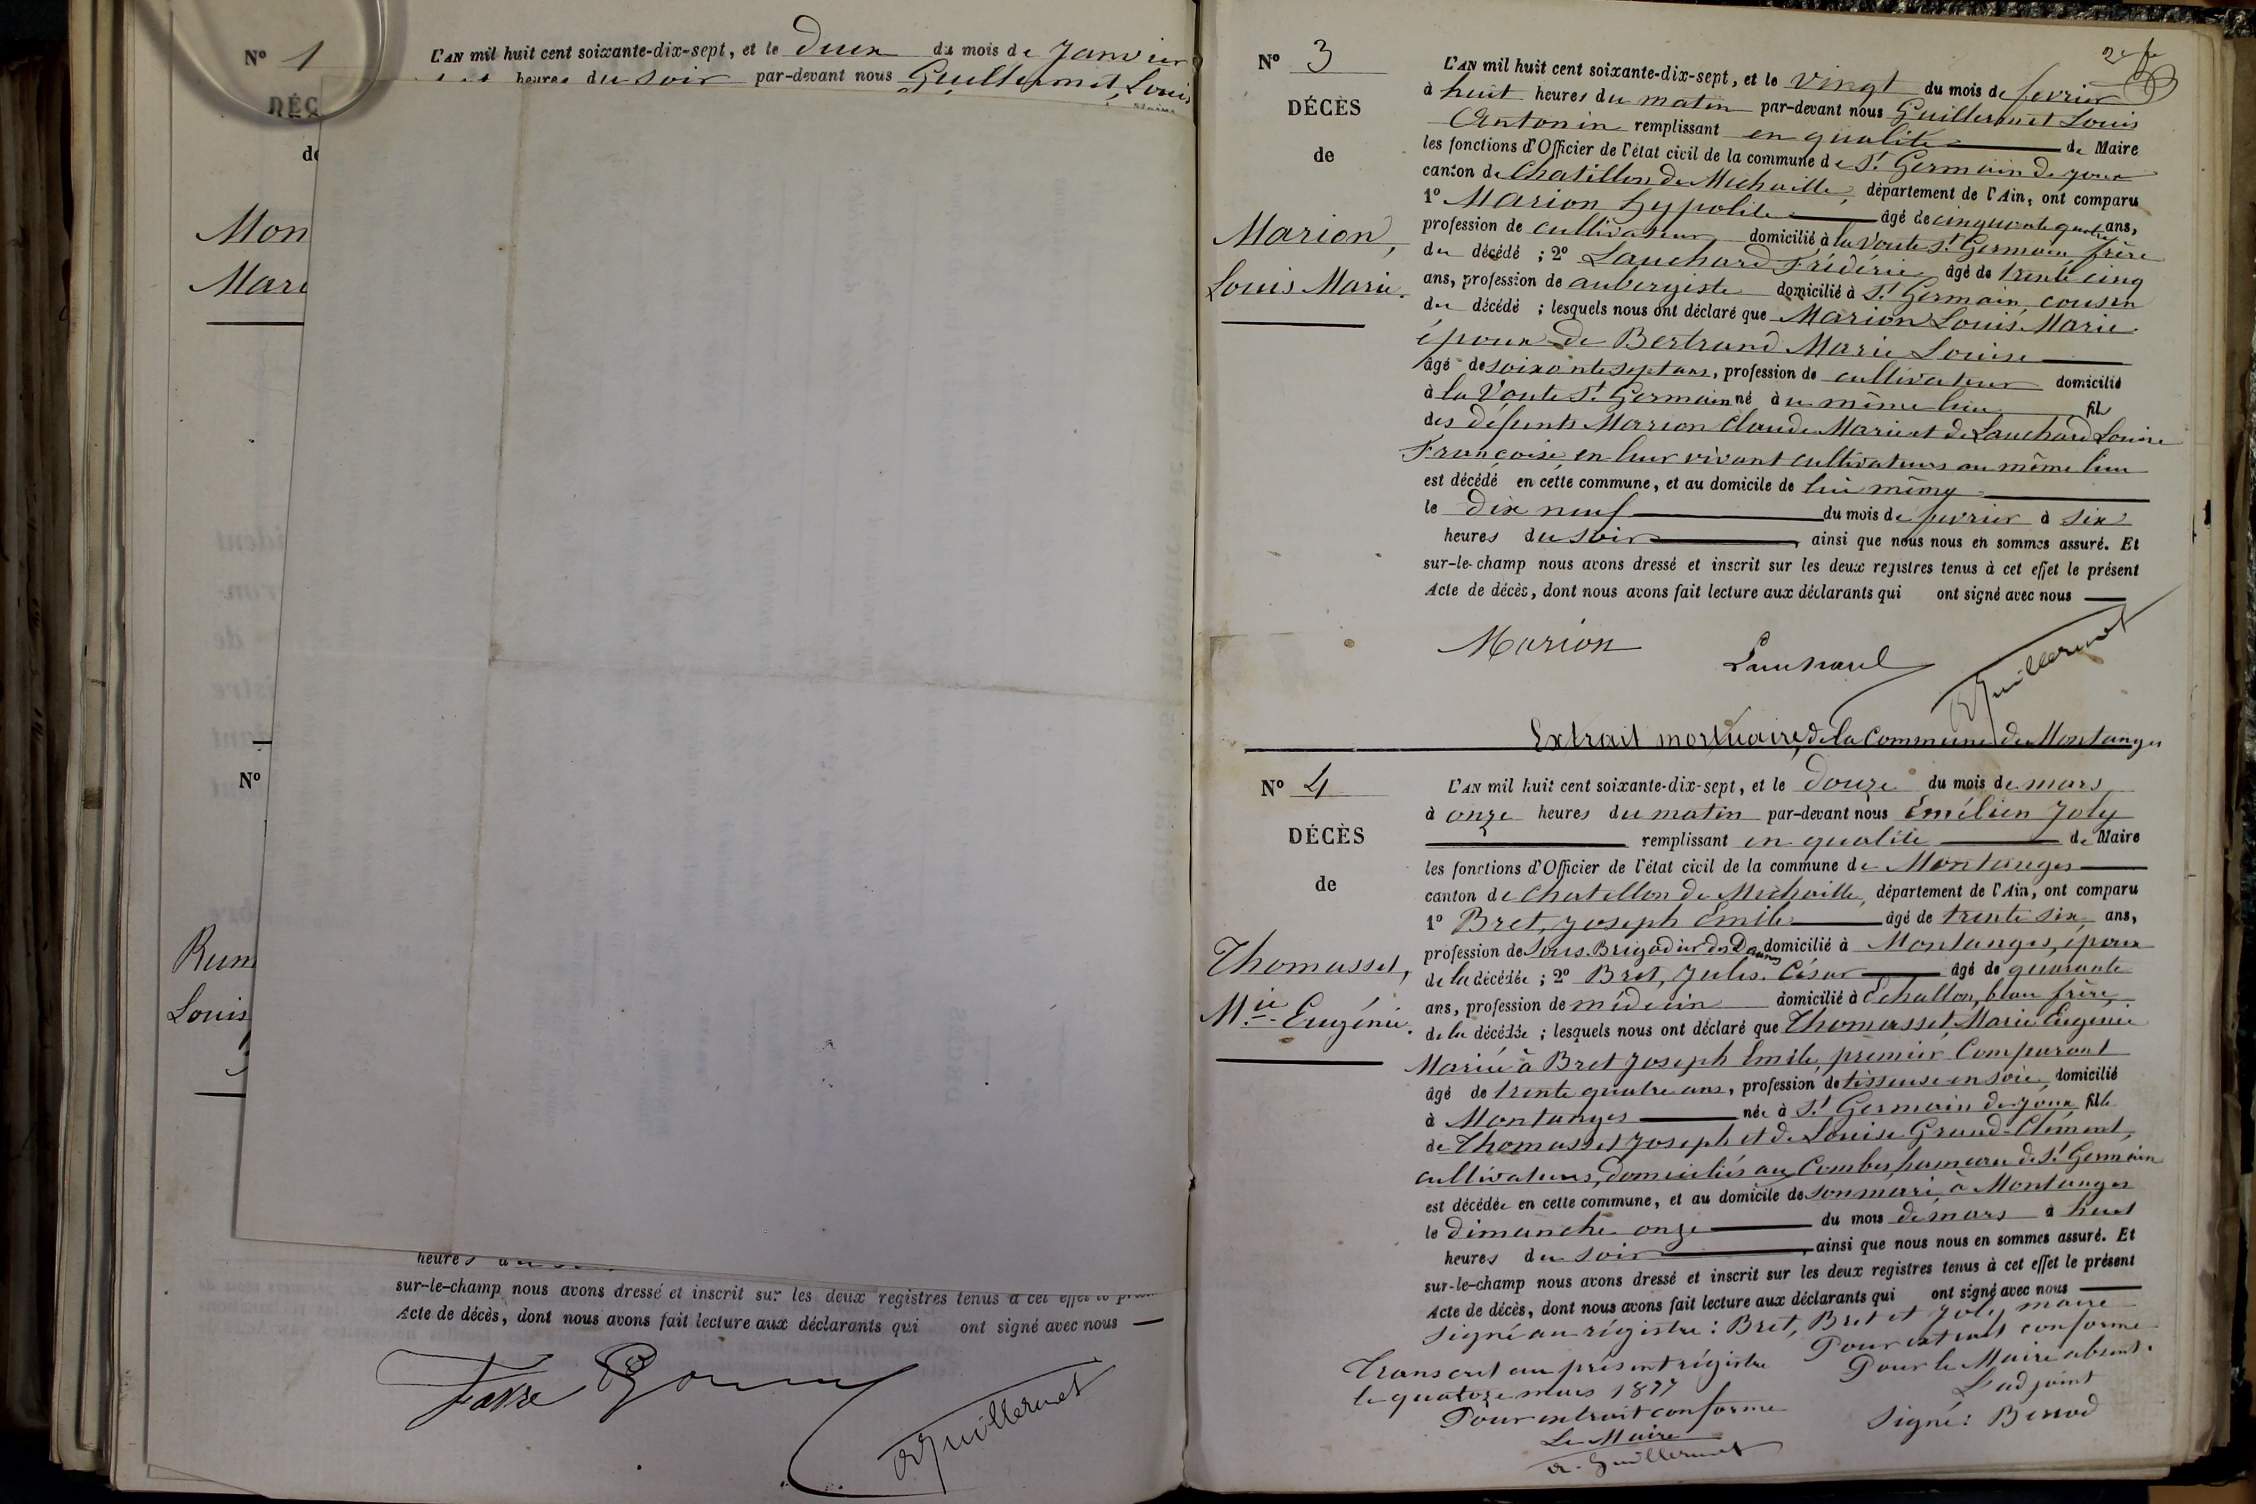 N° 1
L'AN mil huit cent soixante-dix-sept, et le deux du mois de Janvier
heures du soir par-devant nous Guillermet, Louis
DÉC
de
Mon
Mari
N°
Louis
heures
sur-le-champ nous avons dressé et inscrit sur les deux registres tenus à cet effet le
Acte de décès, dont nous avons fait lecture aux déclarants qui ont signé avec nous
Favre
Guillermet
2e f
N° 3
DÉCÈS
de
Marion,
Louis Marie.
L'AN mil huit cent soixante-dix-sept, et le vingt du mois de fevrier
à huit heures du matin par-devant nous Guillermet Louis
Antonin remplissant en qualité de Maire
les fonctions d'Officier de l'état civil de la commune de St Germain de joux
canton de Chatillon de Michaille, département de l'Ain, ont comparu
1° Marion hypolite âgé de cinquante quatre ans,
profession de cultivateur domicilié à la Voute St Germain frère
du décédé ; 2° Lauchard Frédéric âgé de trente cinq
ans, profession de aubergiste domicilié à St Germain cousin
du décédé ; lesquels nous ont déclaré que Marion Louis Marie
époux de Bertrand Marie Louise
âgé de soixante sept ans, profession de cultivateur domicilié
à la Voute St Germain né au même lieu fils
des défunts Marion Claude Marie et de Lauchard Louise
Françoise en leur vivant cultivateurs au même lieu
est décédé en cette commune, et au domicile de lui même
le dix neuf du mois de fevrier à six
heures du soir, ainsi que nous nous en sommes assuré. Et
sur-le-champ nous avons dressé et inscrit sur les deux registres tenus à cet effet le présent
Acte de décès, dont nous avons fait lecture aux déclarants qui ont signé avec nous
Marion Lauchard Guillermet
Extrait mortuaire, de la Commune de Montanges
N° 4
DÉCÈS
de
Thomasset,
Mie Eugénie.
L'AN mil huit cent soixante-dix-sept, et le douze du mois de mars
à onze heures du matin par-devant nous Emélien Joly
remplissant en qualité de Maire
les fonctions d'Officier de l'état civil de la commune de Montanges
canton de Chatillon de Michaille, département de l'Ain, ont comparu
1° Bret, Joseph Emile âgé de trente six ans,
profession de Sous-Brigadier des Douanes domicilié à Montanges, époux
de la décédée ; 2° Bret, Jules. César âgé de quarante
ans, profession de médecin domicilié à Echallon, beau frère
de la décédée ; lesquels nous ont déclaré que Thomasset Marie Eugenie
Mariée à Bret Joseph Emile, premier Comparant
âgé de trente quatre ans, profession de tisseuse en soie domicilié
à Montanges née à St Germain de joux fille
de Thomasset Joseph et de Louise Grand-Clément,
cultivateurs, domiciliés aux Combes, hameau de St Germain
est décédée en cette commune, et au domicile de son mari à Montanges
le dimanche onze du mois de mars à huit
heures du soir, ainsi que nous nous en sommes assuré. Et
sur-le-champ nous avons dressé et inscrit sur les deux registres tenus à cet effet le présent
Acte de décès, dont nous avons fait lecture aux déclarants qui ont signé avec nous
Signé au régistre : Bret, Bret et Joly maire
Pour extrait conforme
Transcrit au présent régistre
Pour le Maire absent.
le quatorze mars 1877
L'adjoint
Pour extrait conforme
Signé :
Le Maire
A. Guillermet